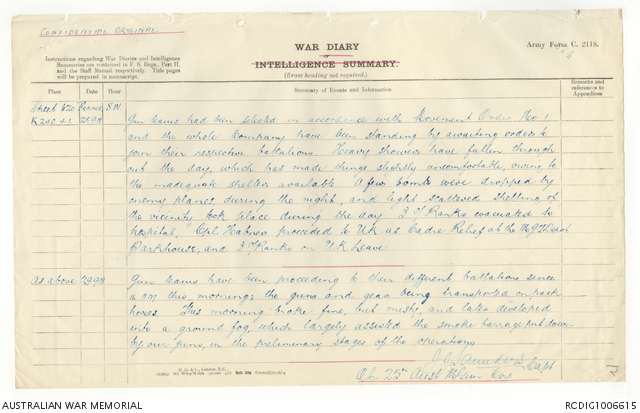 CONFIDENTIAL ORIGINAL
WAR DIARY
Army Form C. 2118.
INTELLIGENCE SUMMARY.
(Erase heading not required.)
Instructions regarding War Diaries and Intelligence
Summaries are contained in F. S. Regs., Part II.
and the Staff Manual respectively. Title pages
will be prepared in manuscript.
Place Date Hour Summary of Events and Information Remarks and references to Appendices
Sheet 62c
Gun teams had been selected in accordance with Movement Order No 1
and the whole Company have been standing by awaiting orders to
join their respective battalions. Heavy showers have fallen through
out the day, which has made things slightly uncomfortable, owing to
the inadequate shelter available. A few bombs were dropped by
enemy planes during the night, and light scattered shelling of
the vicinity took place during the day. 2 O/Ranks evacuated to
hospital, proceeded to UK as Cadre Relief at the
Parkhouse, and 2 O/Ranks on UK Leave
As above 29.9.18 Gun teams have been proceeding to their different battalions since
am this morning, the guns and gear being transported on pack
horses. This morning broke fine, but misty, and later developed
into a ground fog, which largely assisted the smoke barrage put down
by our guns, in the preliminary stages of the operations
Capt
25th Aust M Gun Coy
AUSTRALIAN WAR MEMORIAL
RCDIG1006615